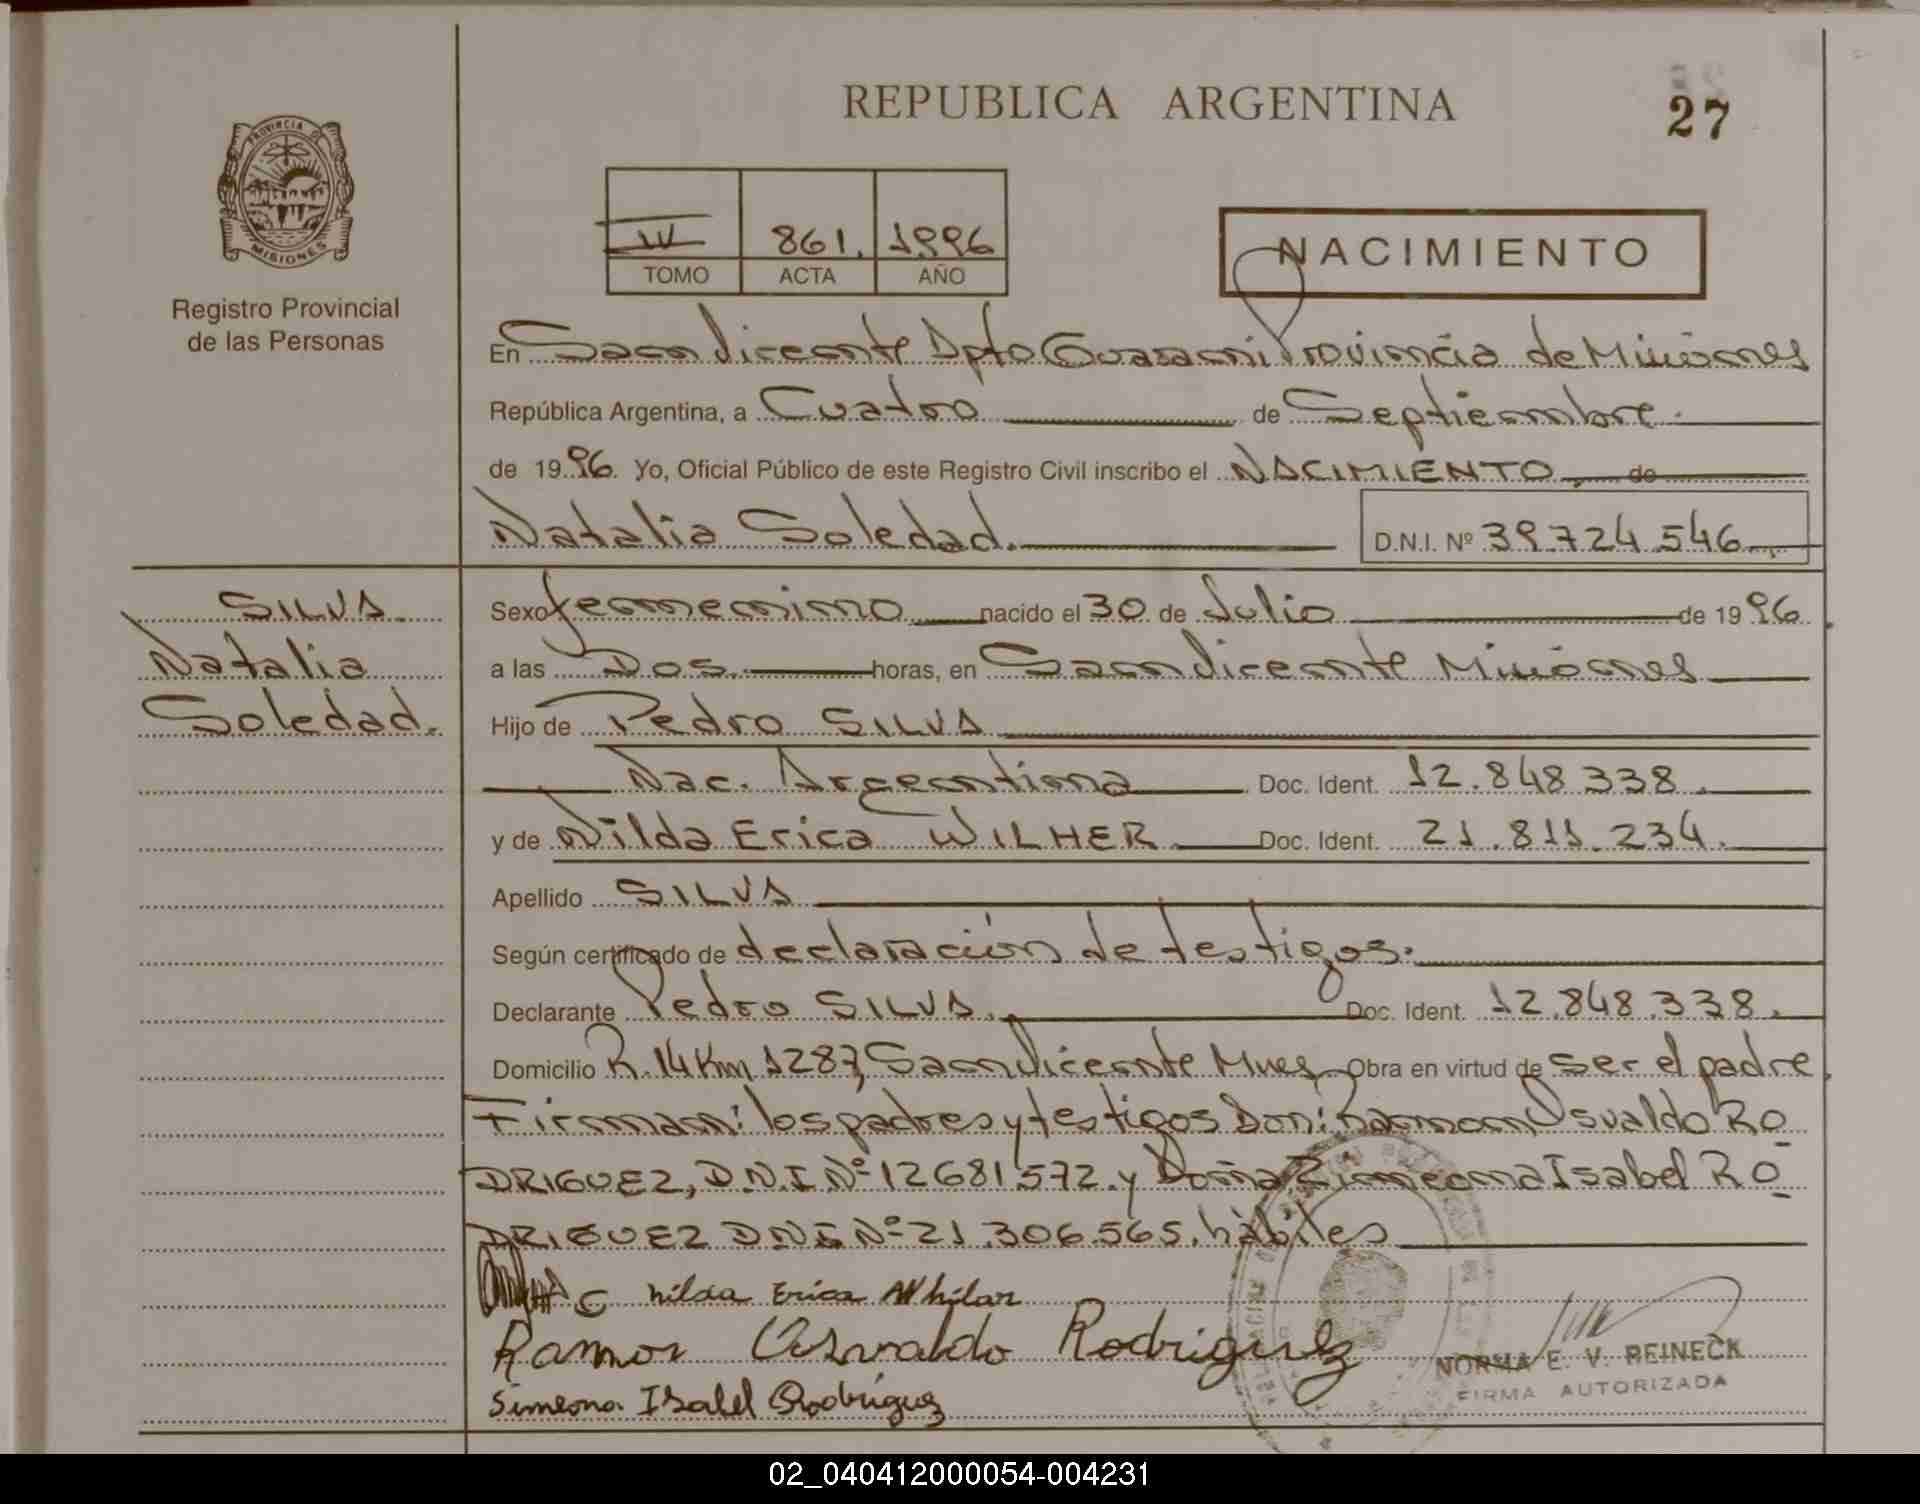 REPUBLICA ARGENTINA
27
PROVINCIA D
MISIONES
Registro Provincial
de las Personas
IV 861. 1996
TOMO ACTA AÑO
NACIMIENTO
En San Vicente Dpto Guarani Provincia de Misiones
República Argentina, a Cuatro de Septiembre.
de 1996. Yo, Oficial Público de este Registro Civil inscribo el NACIMIENTO. de
Natalia Soledad.
D.N.I. Nº 39.724.546
SILVA.
Natalia
Soledad.
Sexo femenino nacido el 30 de Julio de 1996
a las Dos. horas, en San Vicente Misiones
Hijo de Pedro SILVA
Nac. Argentina Doc. Ident. 12.848.338.
y de Nilda Erica WILHER. Doc. Ident. 21.811.234.
Apellido SILVA
Según certificado de declaración de testigos.
Declarante Pedro SILVA. Doc. Ident. 12.848.338.
Domicilio R. 14 Km 1287, San Vicente Mnes. Obra en virtud de ser el padre.
Firman: los padres y testigos Don: Ramon Osvaldo RO
DRIGUEZ, D.N.I Nº 12681.572. y Doña Simeona Isabel RO
DRIGUEZ D.N.I Nº 21.306.565. hábiles
nilda Erica Whilar
Ramon Osvaldo Rodriguez
Simeona Isabel Rodriguez
NORMA E. V. REINECK
FIRMA AUTORIZADA
02_040412000054-004231